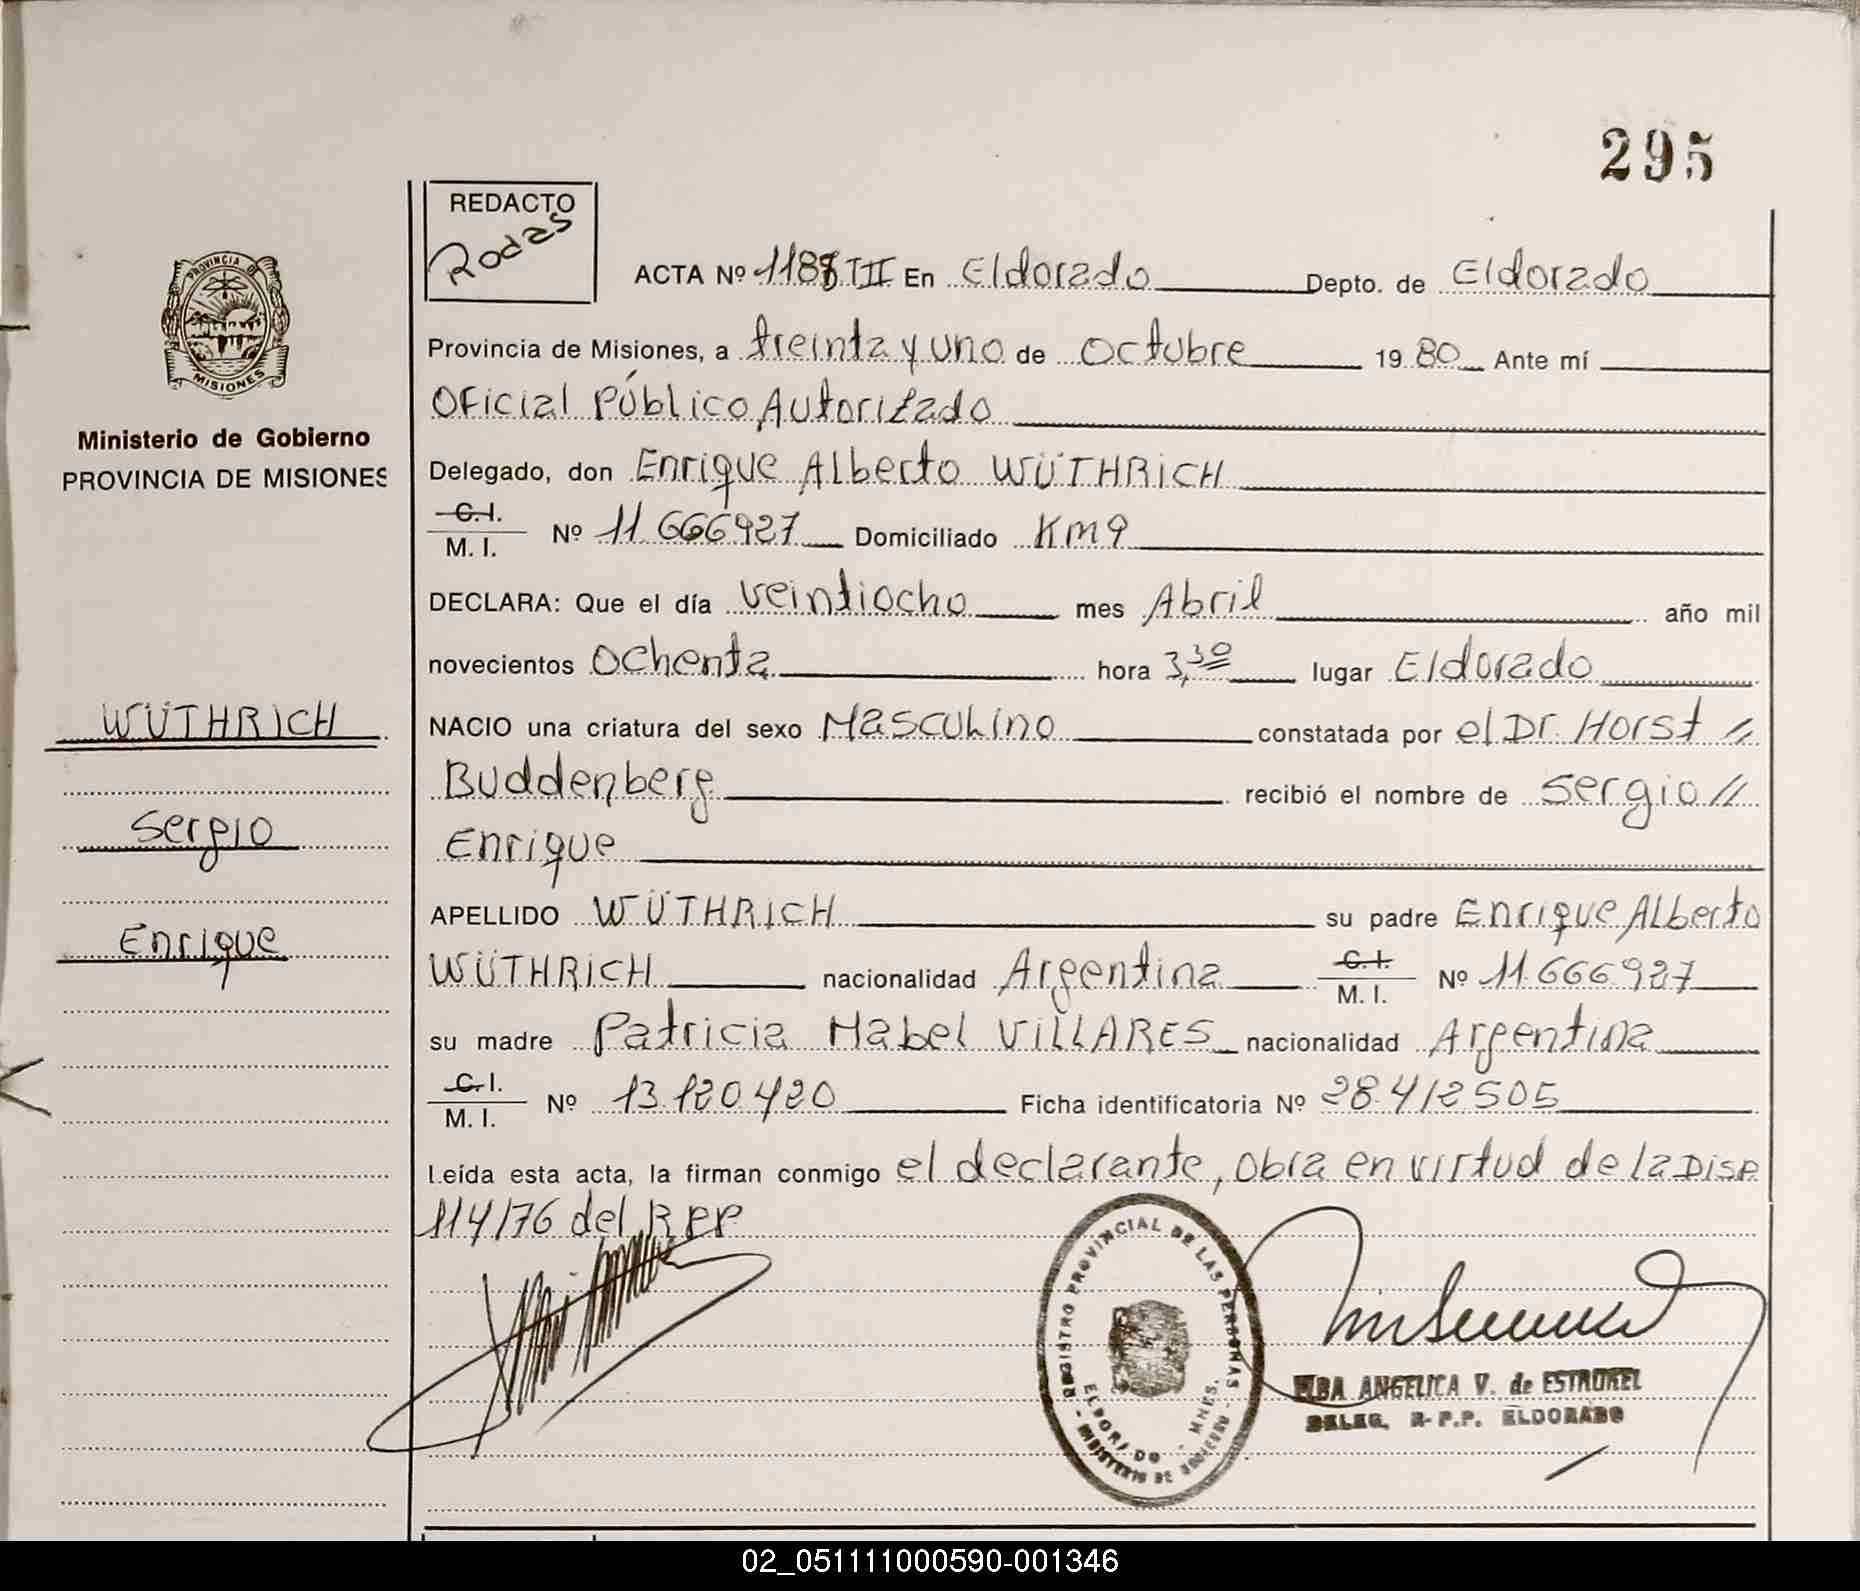 295
REDACTO
Rodas
ACTA Nº 1188 III En Eldorado Depto. de Eldorado
Provincia de Misiones, a treinta y uno de Octubre 19 80 Ante mí
Oficial Público Autorizado
Delegado, don Enrique Alberto WÜTHRICH
C.I.
M. I. Nº 11.666.927 Domiciliado Km 9
DECLARA: Que el día veintiocho mes Abril año mil
novecientos Ochenta hora 3,30 lugar Eldorado
NACIO una criatura del sexo Masculino constatada por el Dr. Horst //
Buddenberg recibió el nombre de Sergio //
Enrique
APELLIDO WÜTHRICH su padre Enrique Alberto
WÜTHRICH nacionalidad Argentina C.I.
M. I. Nº 11.666.927
su madre Patricia Mabel VILLARES nacionalidad Argentina
C.I.
M. I. Nº 13.120.420 Ficha identificatoria Nº 28.412.505
Leída esta acta, la firman conmigo el declarante, obra en virtud de la Disp.
114/76 del R P P
PROVINCIA DE
MISIONES
Ministerio de Gobierno
PROVINCIA DE MISIONES
WÜTHRICH
Sergio
Enrique
REGISTRO PROVINCIAL DE LAS PERSONAS
ELDORADO - MNES.
- MINISTERIO DE GOBIERNO -
ELBA ANGELICA V. de
DELEG. R.P.P. ELDORADO
02_051111000590-001346